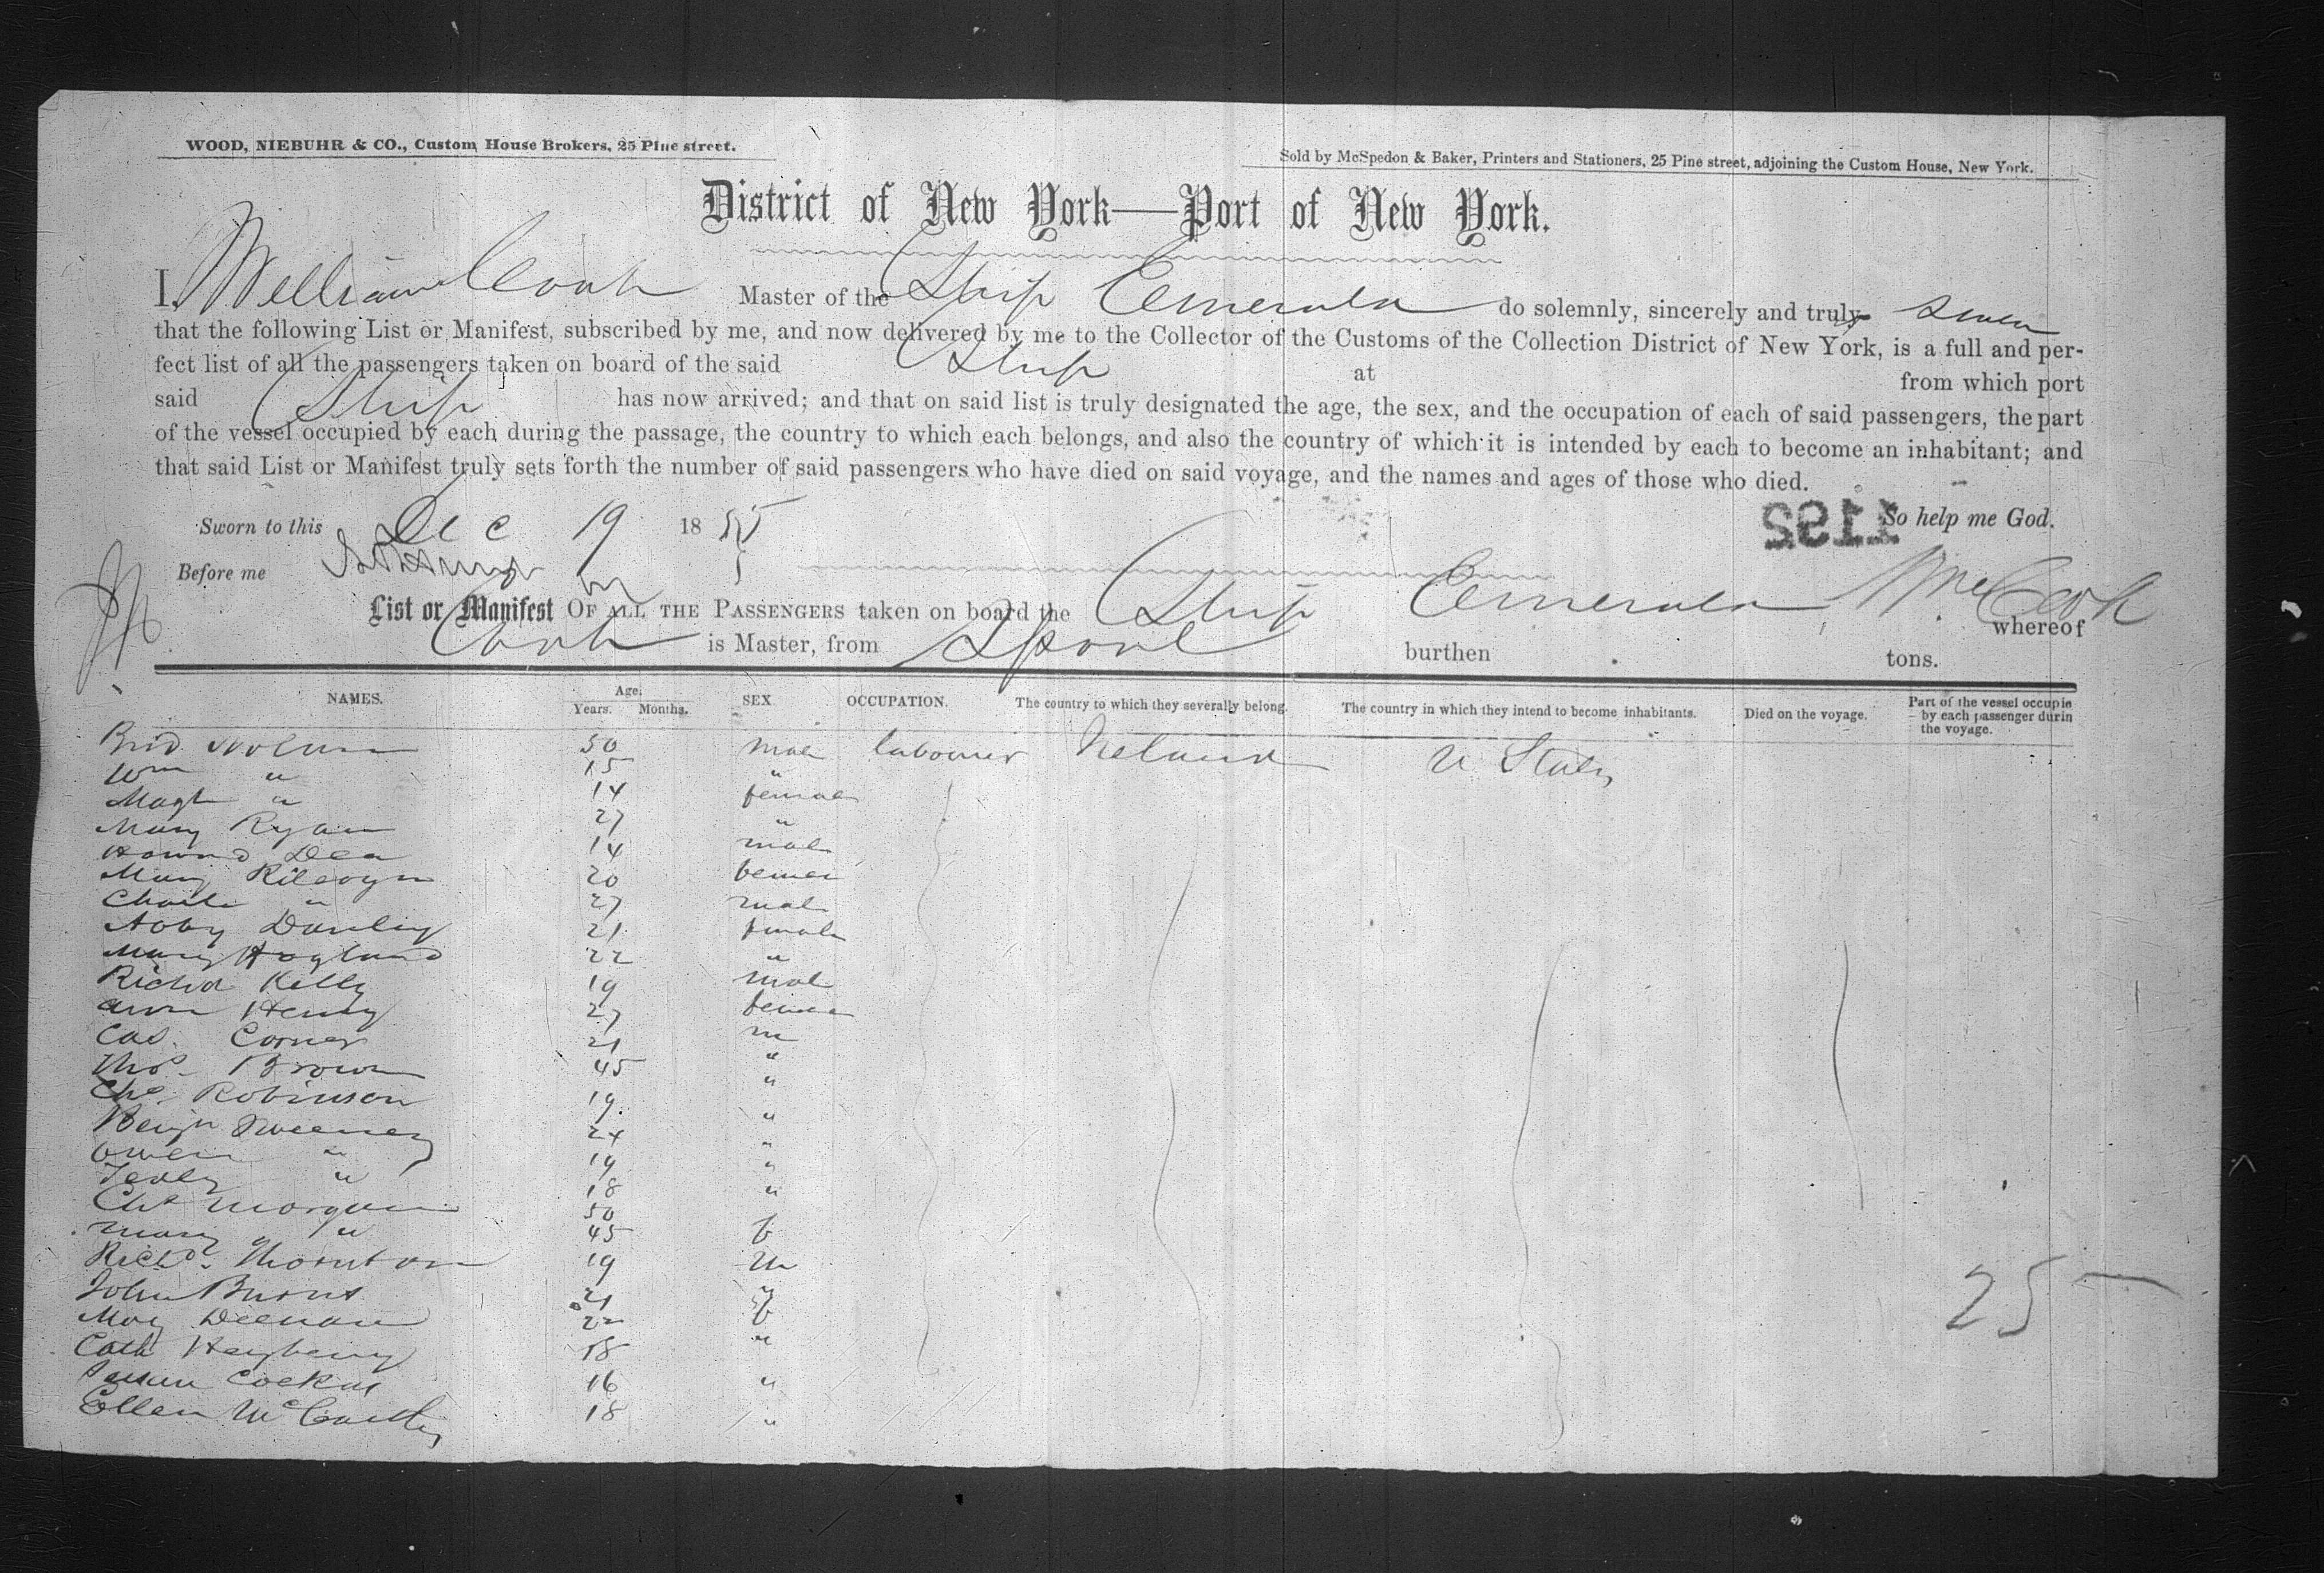 WOOD, NIEBUHR & CO., Custom House Brokers, 25 Pine street.
Sold by McSpedon & Baker, Printers and Stationers, 25 Pine street, adjoining the Custom House, New York.
District of New York—Port of New York.
I, William Cook Master of the Ship Emerald do solemnly, sincerely and truly swear
that the following List or Manifest, subscribed by me, and now delivered by me to the Collector of the Customs of the Collection District of New York, is a full and per-
fect list of all the passengers taken on board of the said Ship at from which port
said Ship has now arrived; and that on said list is truly designated the age, the sex, and the occupation of each of said passengers, the part
of the vessel occupied by each during the passage, the country to which each belongs, and also the country of which it is intended by each to become an inhabitant; and
that said List or Manifest truly sets forth the number of said passengers who have died on said voyage, and the names and ages of those who died.
Sworn to this Dec 19 1855
1192 So help me God.
Before me
Wm Cook
List or Manifest OF ALL THE PASSENGERS taken on board the Ship Emerald whereof
Cook is Master, from Lpool burthen tons.
NAMES. Age. Years. Months. SEX OCCUPATION. The country to which they severally belong. The country in which they intend to become inhabitants. Died on the voyage. Part of the vessel occupie by each passenger durin the voyage.
50 male labourer Ireland U States
Wm " 15 "
Magt " 14 female
Mary Ryan 27 "
Dea 14 male
Mary 20 female
" 27 male
Abby 21 female
Mary Hogland 22 "
Richd Kelly 19 male
Ann Henry 27 female
21 m
Thos Brown 45 "
Chs Robinson 19 "
Benjn Sweeney 24 "
Owen " 19 "
" 18 "
Morgan 50 "
Mary " 45 f
Richd Thornton 19 m
John Burns 21 "
22 f
Cath 18 "
16 "
Ellen McCarthy 18 "
25